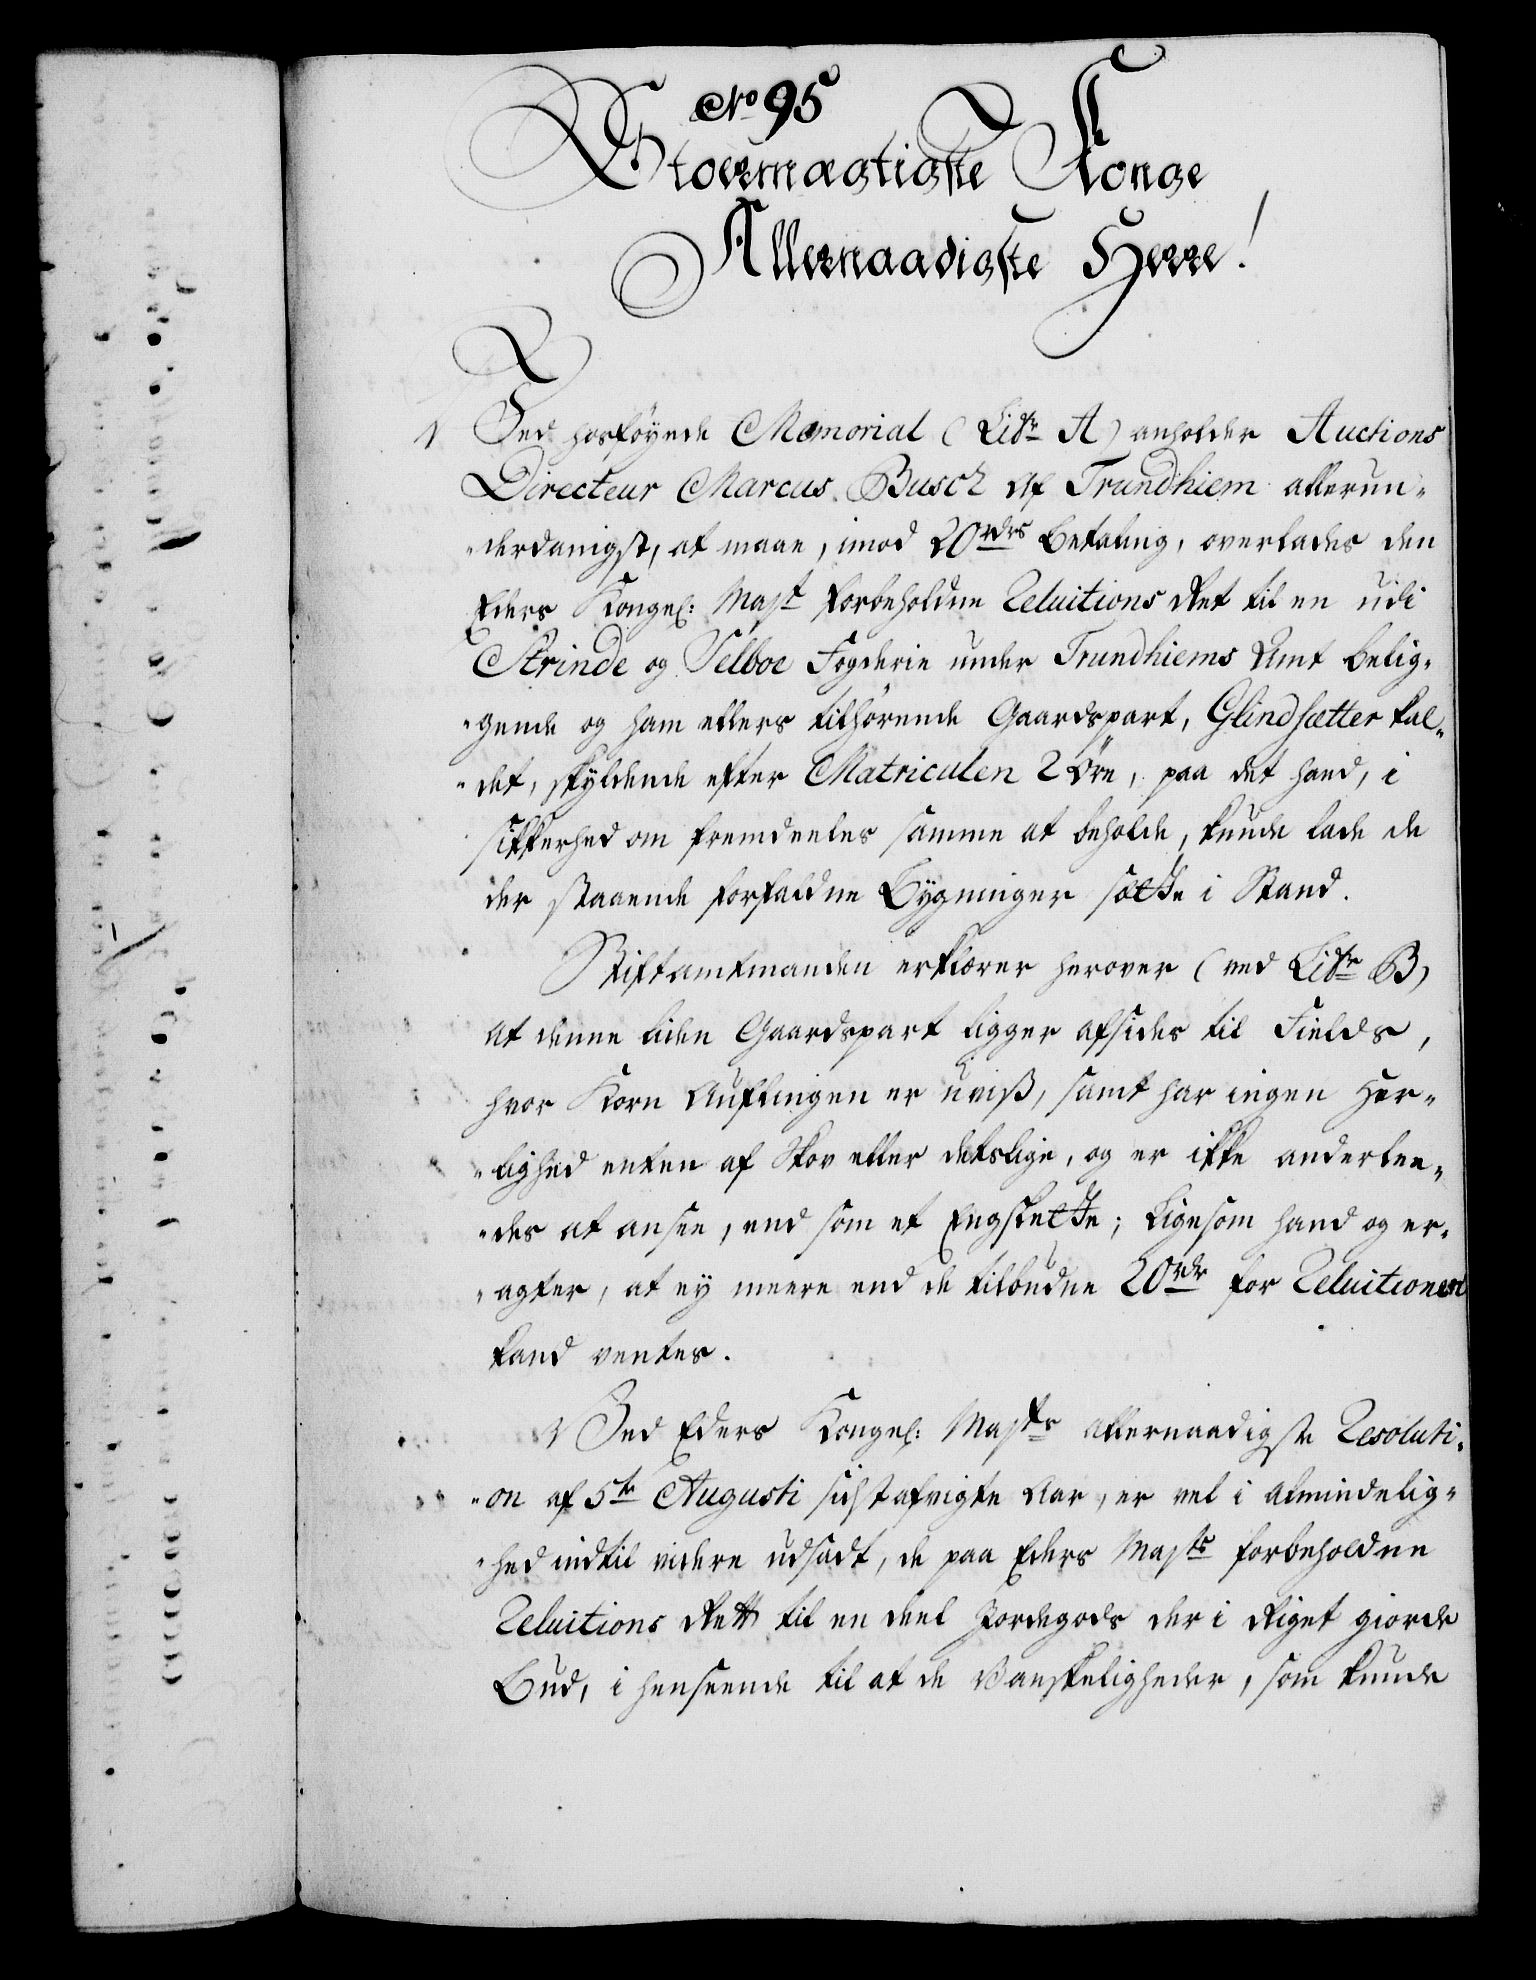 No 95
Stoermægtigste Konge
Allernaadigste Herre!
Ved hosföyede Memorial (Litr A) anholder Auctions
Directeur Marcus Busch af Trundhiem allerun-
-derdanigst, at maae, imod 20 rdrs betaling, overlades den
Eders Kongel: Mayt forbeholdne Reluitions Ret til en udi
Strinde og Selboe Fogderie under Trundhiems Amt belig-
-gende og ham ellers tilhørende Gaardspart, Glindsætter kal-
-det, skyldende efter Matriculen 2 Øre, paa det hand, i
sikkerhed om fremdeeles samme at beholde, kunde lade de
der staaende forfaldne Bygninger sætte i Stand.
Stiftamtmanden erklærer herover (ved Litr B)
at denne liden Gaardspart ligger afsides til Fields,
hvor Korn Auflingen er uviß, samt har ingen Her-
-lighed enten af Skov eller detslige, og er ikke anderlee-
-des at ansee, end som et Engslette; Ligesom hand og er-
-agter, at ey meere end de tilbudne 20 rdr for Reluitionen
kand ventes.
Ved Eders Kongel: Mayts allernaadigste Resoluti-
-on af 5te Augusti sidstafvigte Aar, er vel i almindelig-
-hed indtil videre udsadt, de paa Eders Mayts forbeholdne
Reluitions Rett til en deel Jordegods der i Riget giorde
Bud, i henseende til at de Vanskeligheder, som kunde